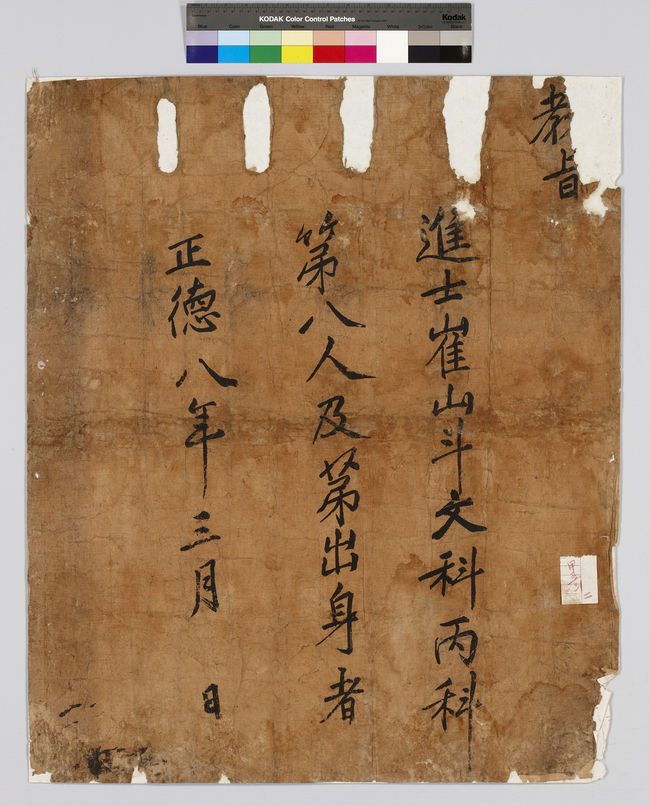 教旨
進士崔山斗文科丙科
第八人及第出身者
正德八年三月 日
KODAK Color Control Patches
Kodak
Blue Cyan Green Yellow Red Magenta White 3/Color Black